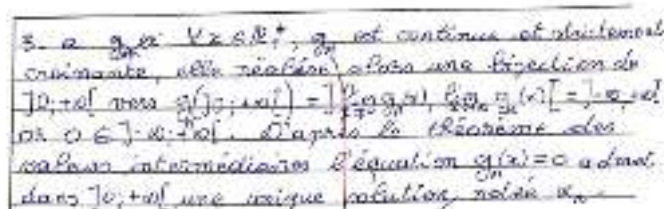 3. a ∀x ∈ ℝ*₊, gₙ est continue et strictement
croissante, elle réalise alors une bijection de
]0; +∞[ vers g(]0; +∞[) = ]lim gₙ(x), lim gₙ(x)[ = ]-∞; +∞[
or 0 ∈ ]-∞; +∞[. D'après le théorème des
valeurs intermédiaires l'équation gₙ(x) = 0 admet
dans ]0; +∞[ une unique solution notée αₙ.